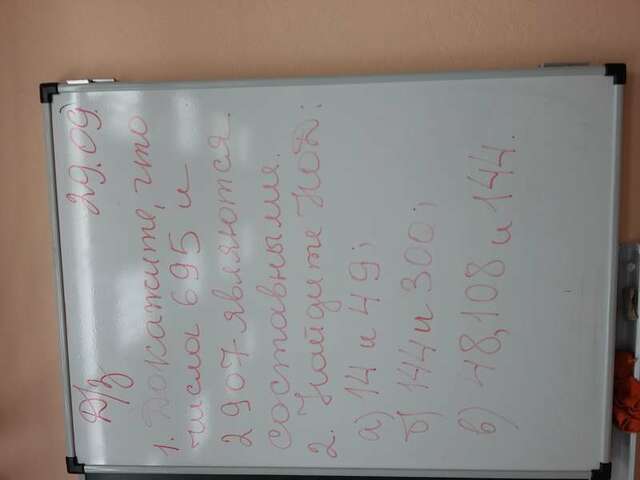 Д/з 29.09)
1. Докажите, что
числа 695 и
2907 являются
составными.
2. Найдите НОД:
а) 14 и 49;
б) 144 и 300;
в) 48, 108 и 144.